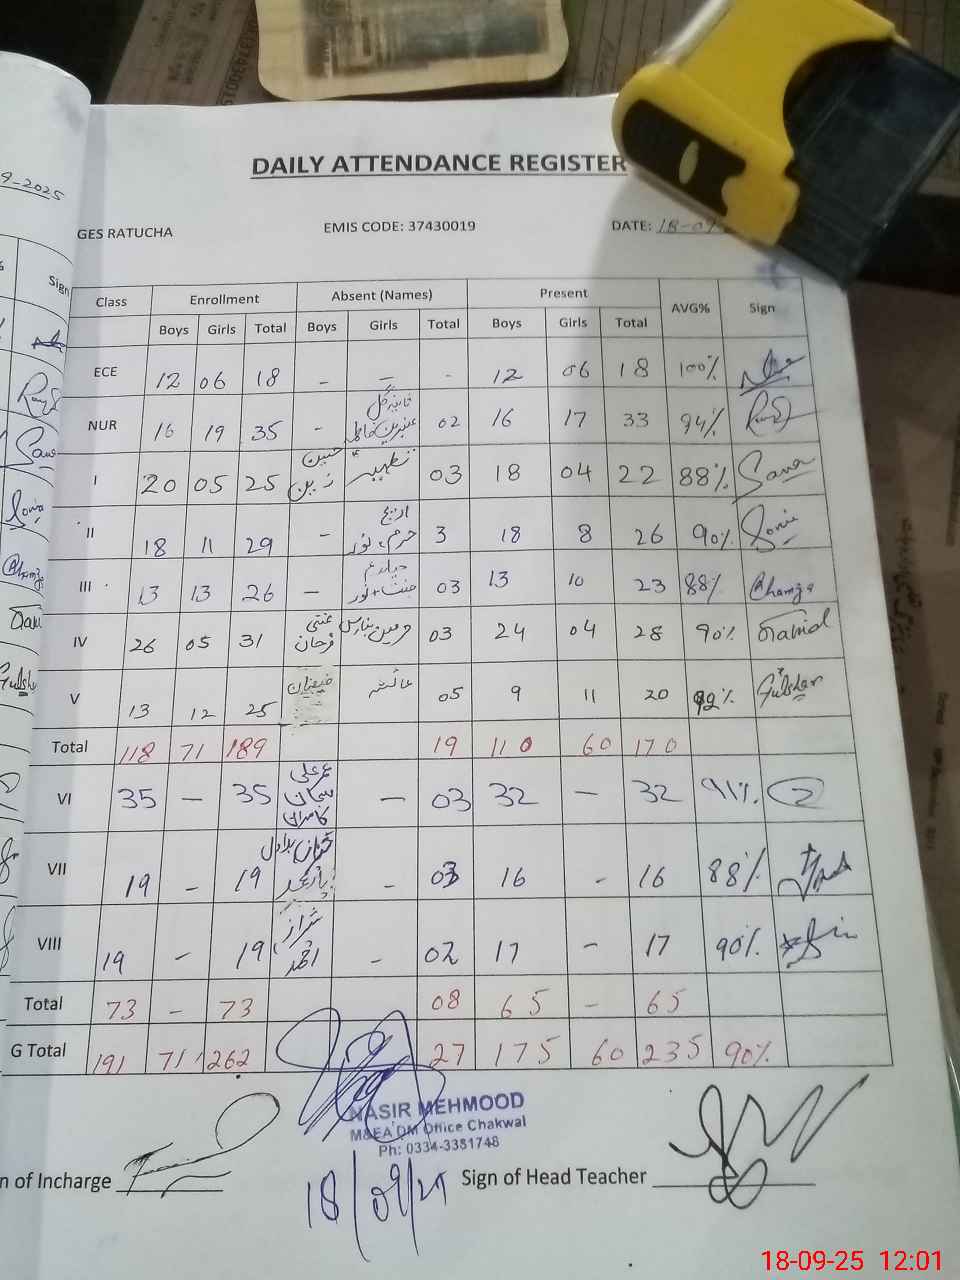 9-2025
Sign
DAILY ATTENDANCE REGISTER
GES RATUCHA EMIS CODE: 37430019 DATE: 18-09
Class Enrollment Absent (Names) Present AVG% Sign
Boys Girls Total Boys Girls Total Boys Girls Total
ECE 12 06 18 - - - 12 06 18 100%
NUR 16 19 35 - 02 16 17 33 94%
I 20 05 25 حسین زین تطہیر 03 18 04 22 88% Sana
II 18 11 29 - اریج حرم، نور 3 18 8 26 90% Sonia
III 13 13 26 - جنت، نور 03 13 10 23 88% Chamza
IV 26 05 31 فرحان 03 24 04 28 90%
V 13 12 25 فیضان عائشہ 05 9 11 20 92% Gulshan
Total 118 71 189 19 110 60 170
VI 35 - 35 عمر علی سبحان کامران - 03 32 - 32 91%
VII 19 - 19 - 03 16 - 16 88%
VIII 19 - 19 شیراز احمد - 02 17 - 17 90%
Total 73 - 73 08 65 - 65
G Total 191 71 262 27 175 60 235 90%
NASIR MEHMOOD
M&EA DM Office Chakwal
Ph: 0334-3351748
n of Incharge Sign of Head Teacher
18/09/25
18-09-25 12:01